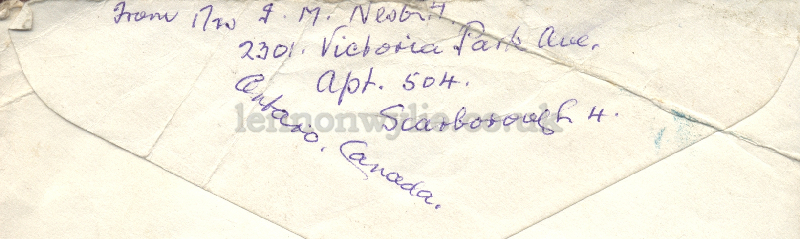 From Mrs I. M. Nesbitt.
2301. Victoria Park Ave.
Apt. 504.
Scarborough 4.
Ontario. Canada.
lennonwylie.co.uk